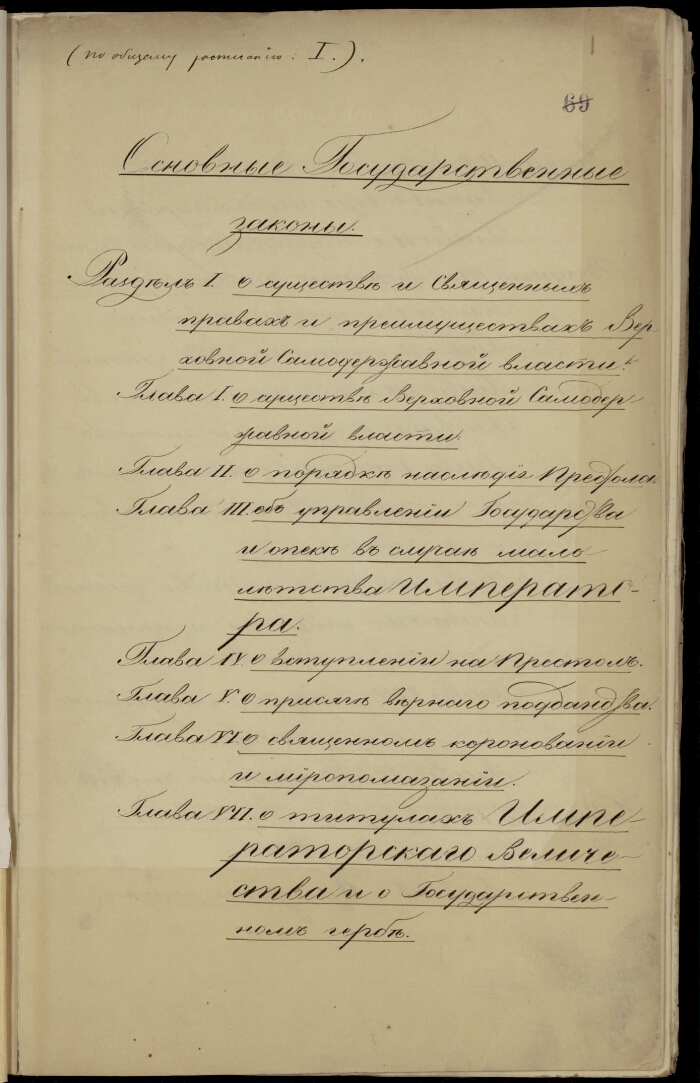 (по общему росписанію: I.).
1
69
Основные Государственные
законы.
Раздѣлъ I. о существѣ и Священныхъ
правахъ и преимуществахъ Вер-
ховной Самодержавной власти.
Глава I. о существѣ Верховной Самодер-
жавной власти.
Глава II. о порядкѣ наслѣдія Престола.
Глава III. объ управленіи Государства
и опекѣ въ случаѣ мало
лѣтства Императо-
ра.
Глава IV. о вступленіи на Престолъ.
Глава V. о присягѣ вѣрнаго подданства.
Глава VI. о священномъ коронованіи
и мѵропомазаніи.
Глава VII. о титулахъ Импе-
раторскаго Величе-
ства и о Государствен-
номъ гербѣ.